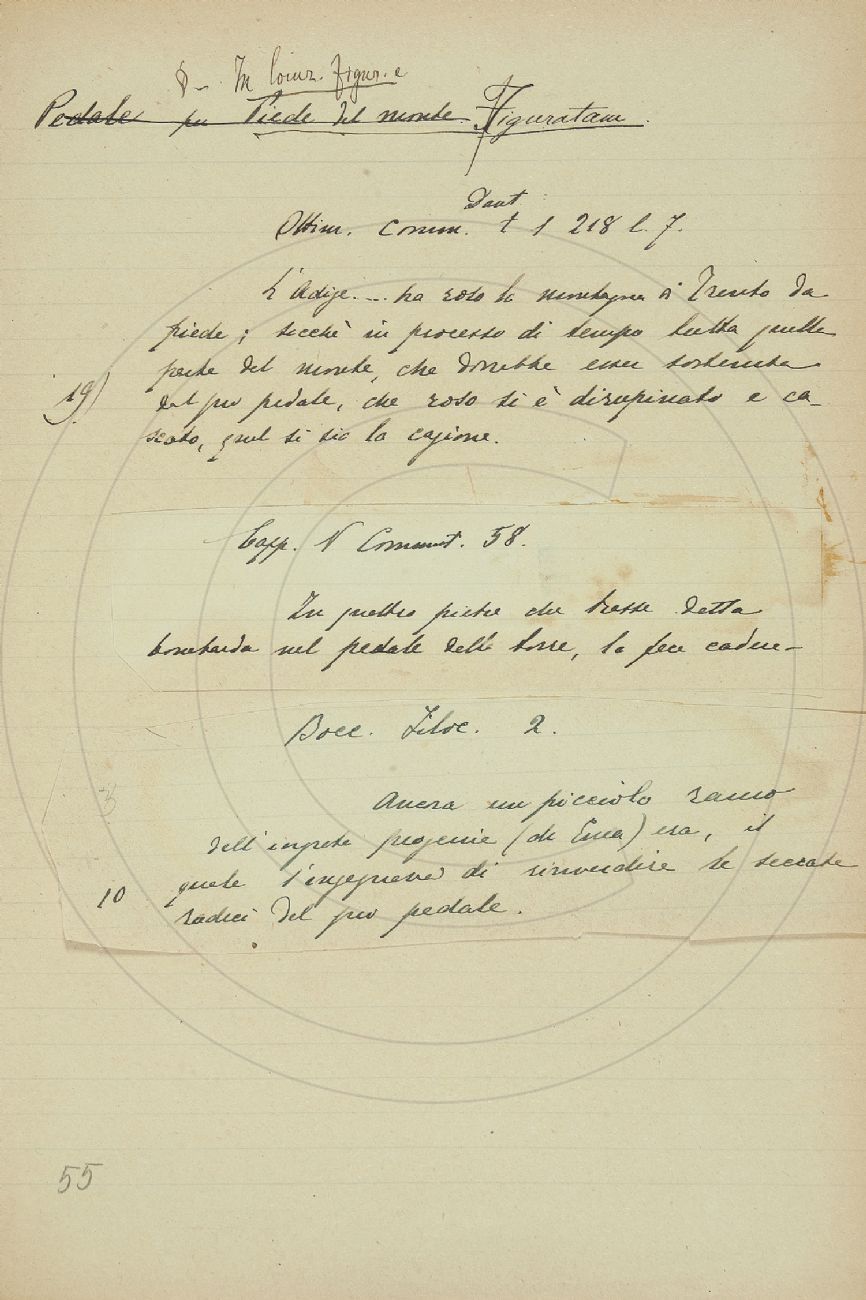 § – In locuz. figur.e
Pedale per Piede del monte Figuratam.
Dant
Ottim. Comm. t 1 218 l. 7.
L'Adige.... ha roso la montagna di Trento da
piede; sicchè in processo di tempo tutta quella
parte del monte, che dovrebbe esser sostenuta
19) dal suo pedale, che roso si è dirupinato e ca-
scato, qual si sia la cagione.
Capp. N Comment. 58.
In quattro pietre che trasse detta
bombarda nel pedale della torre, la fece cadere –
Bocc. Filoc. 2.
3 Ancora un picciolo ramo
dell'ingrata progenie (di Enea) era, il
quale s'ingegnava di rinverdire le seccate
10 radici del suo pedale.
55